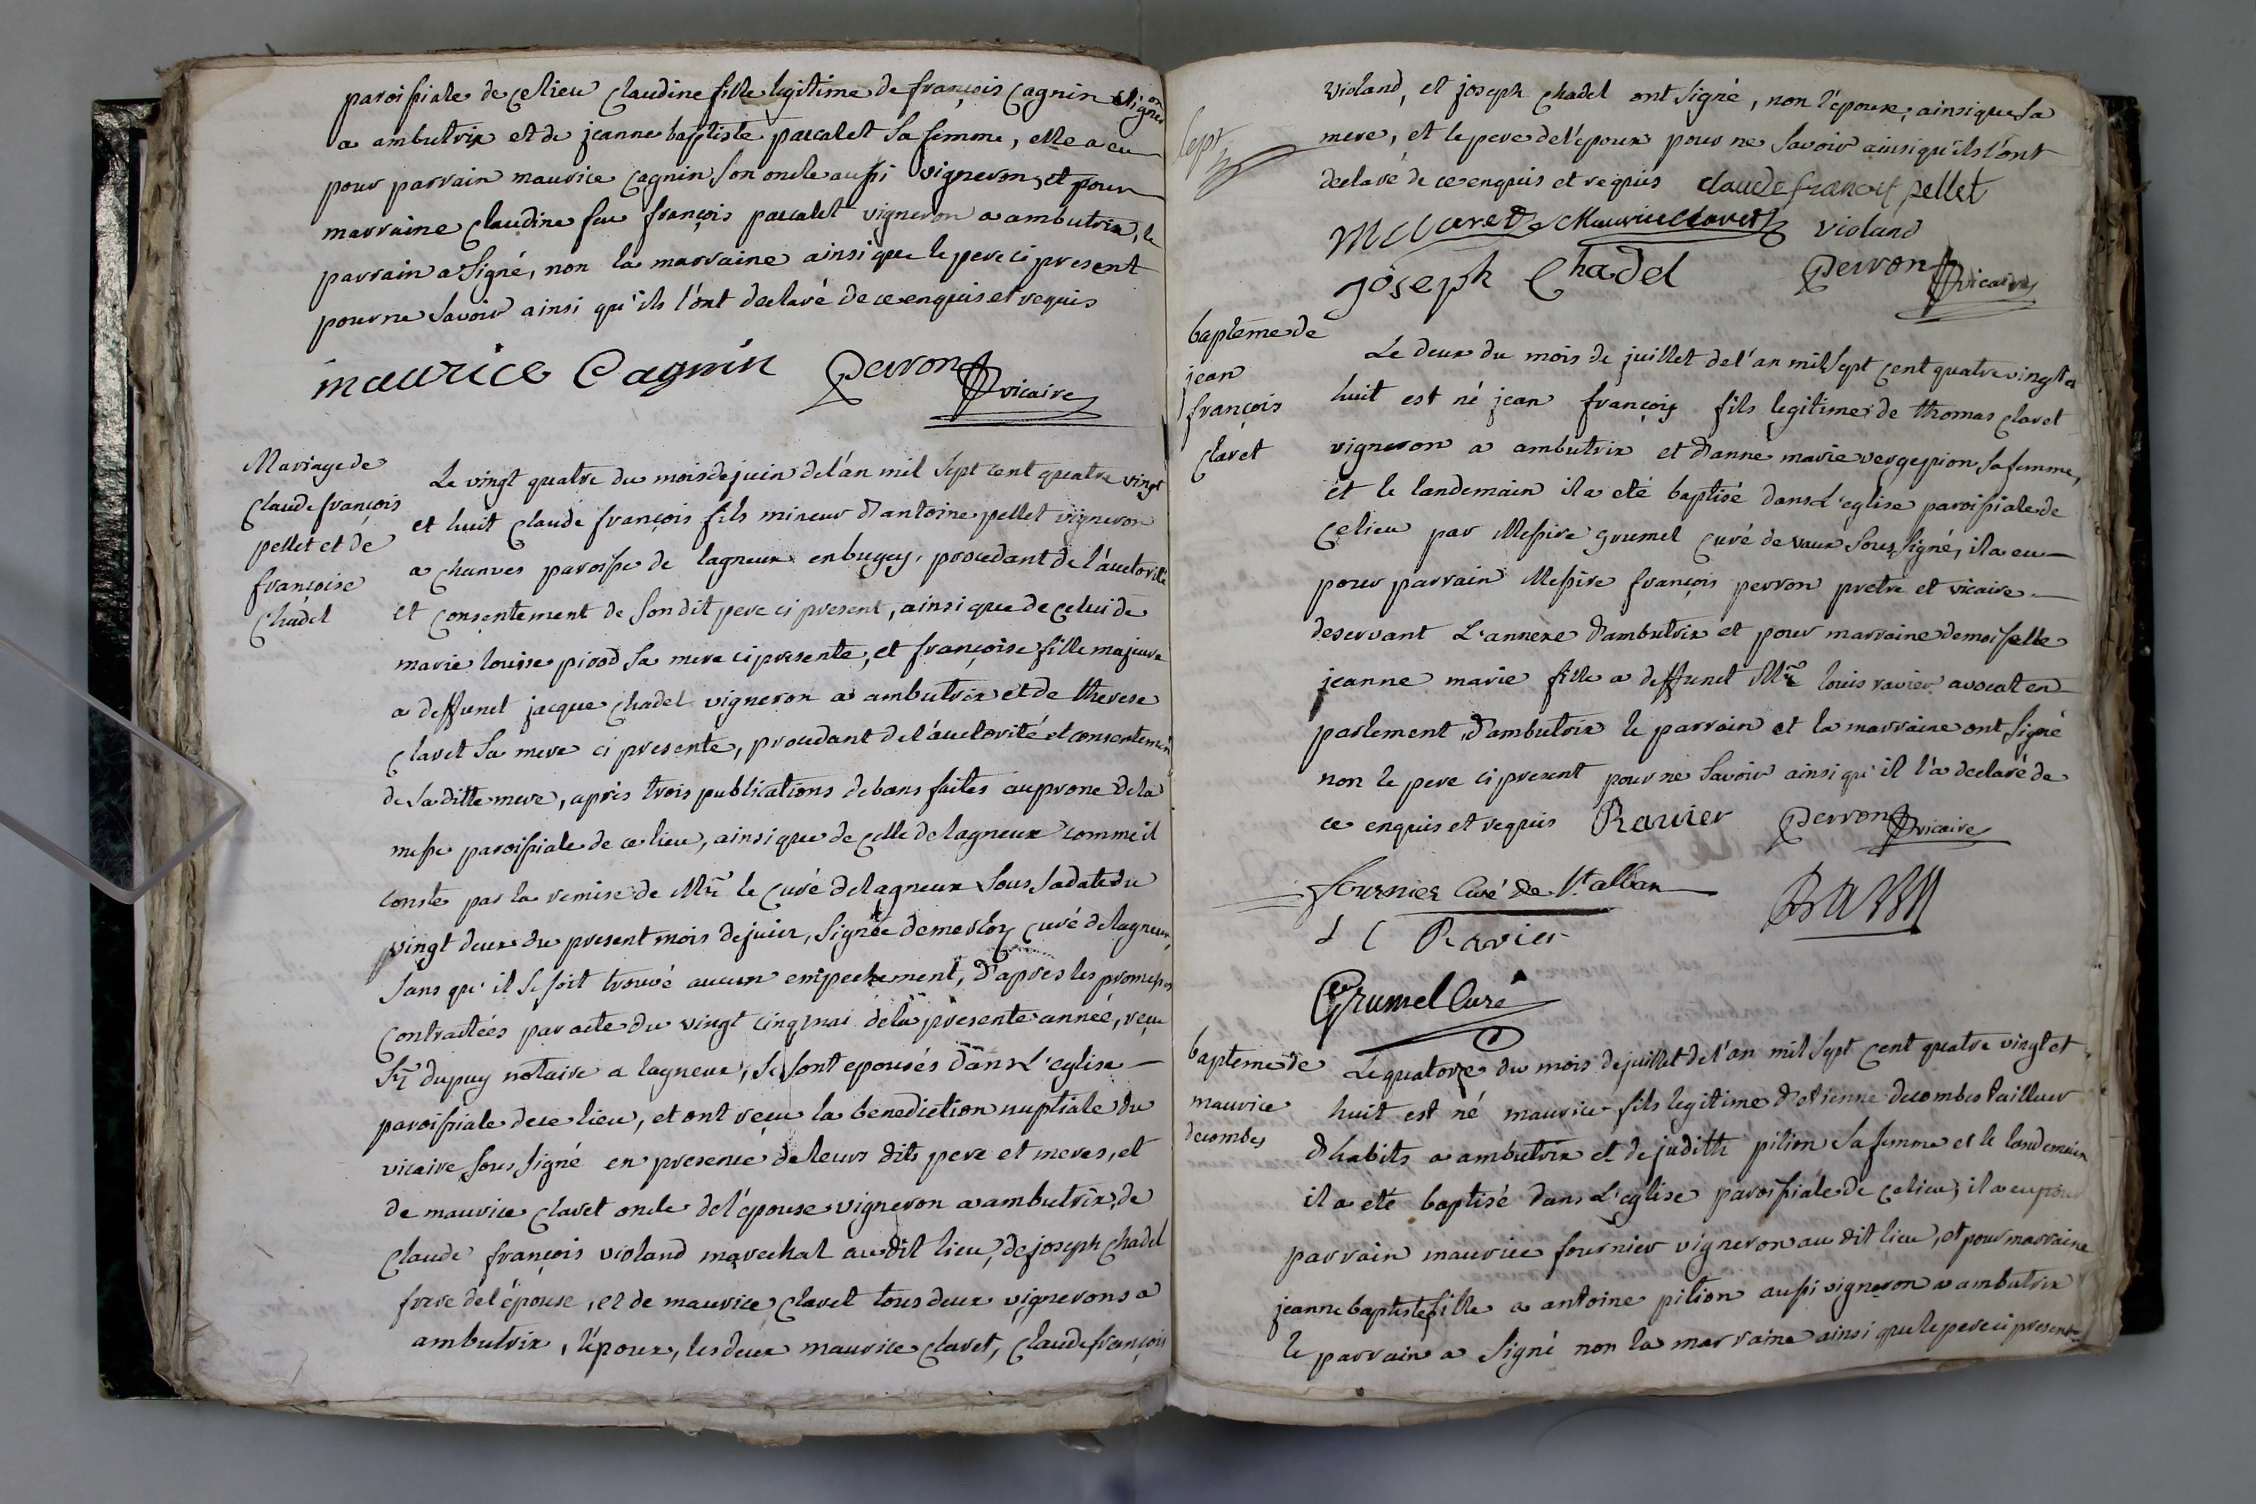 paroissiale de ce lieu Claudine fille legitime de françois Cagnin vigneron
a ambutrix et de jeanne baptiste pascalet sa femme, elle a eu
pour parrain maurice Cagnin son oncle aussi vigneron, et pour
marraine Claudine feu françois pascalet vigneron a ambutrix, le
parrain a signé, non la marraine ainsi que le pere ci present
pour ne savoir ainsi qu'ils l'ont declaré de ce enquis et requis
maurice Cagnin perron vicaire
Mariage de
Claude françois
pellet et de
françoise
Chadel
Le vingt quatre du mois de juin de l'an mil sept cent quatre vingt
et huit Claude françois fils mineur d'antoine pellet vigneron
a Chanves paroisse de lagneux en bugey, procedant de l'auctorité
et consentement de son dit pere ci present, ainsi que de celui de
marie louise picod sa mere ci presente, et françoise fille majeure
a deffunct jacque Chadel vigneron a ambutrix et de therese
Clavet sa mere ci presente, procedant de l'auctorité et consentement
de sa ditte mere, après trois publications de bans faites au prone de la
messe paroissiale de ce lieu, ainsi que de celle de lagneux comme il
conste par la remise de Mre le Curé de lagneux sous sa date du
vingt deux du present mois de juin, signée demerloz curé de lagneux,
sans qu'il se soit trouvé aucun empechement, d'apres les promesses
contractées par acte du vingt cinq mai de la presente année, reçu
Me dupuy notaire a lagneux, se sont epousés dans L'eglise
paroissiale de ce lieu, et ont reçu la benediction nuptiale du
vicaire sous signé en presence de leurs dits pere et meres, et
de maurice Clavet oncle de l'épouse vigneron a ambutrix, de
Claude françois violand marechal au dit lieu, de joseph Chadel
frere de l'épouse, et de maurice Clavet tous deux vignerons a
ambutrix, l'époux, les deux maurice Clavet, Claude françois
violand, et joseph Chadel ont signé, non l'épouse, ainsi que sa
mere, et le pere de l'époux pour ne savoir ainsi qu'ils l'ont
declaré de ce enquis et requis Claude francois pellet
M Clavet Maurice Clavet violand
joseph Chadel perron vicaire
Sept
baptême de
jean
françois
Clavet
Le deux du mois de juillet de l'an mil sept cent quatre vingt et
huit est né jean françois fils legitime de thomas Clavet
vigneron a ambutrix et d'anne marie vergepion sa femme,
et le landemain il a eté baptisé dans L'eglise paroissiale de
ce lieu par Messire grumel Curé de vaux sous signé, il a eu
pour parrain Messire françois perron pretre et vicaire
deservant L'annexe d'ambutrix et pour marraine demoiselle
jeanne marie fille a deffunct Mre louis ravier avocat en
parlement, d'ambutrix le parrain et la marraine ont signé
non le pere ci present pour ne savoir ainsi qu'il l'a declaré de
ce enquis et requis Ravier perron vicaire
fournier Curé de St alban
Ravier
Grumel Curé
baptême de
maurice
decombes
Le quatorze du mois de juillet de l'an mil sept cent quatre vingt et
huit est né maurice fils legitime d'etienne decombes tailleur
d'habits a ambutrix et de judith pition sa femme et le landemain
il a eté baptisé dans L'eglise paroissiale de ce lieu, il a eu pour
parrain maurice fournier vigneron au dit lieu, et pour marraine
jeanne baptiste fille a antoine pition aussi vigneron a ambutrix
le parrain a signé non la marraine ainsi que le pere ci present